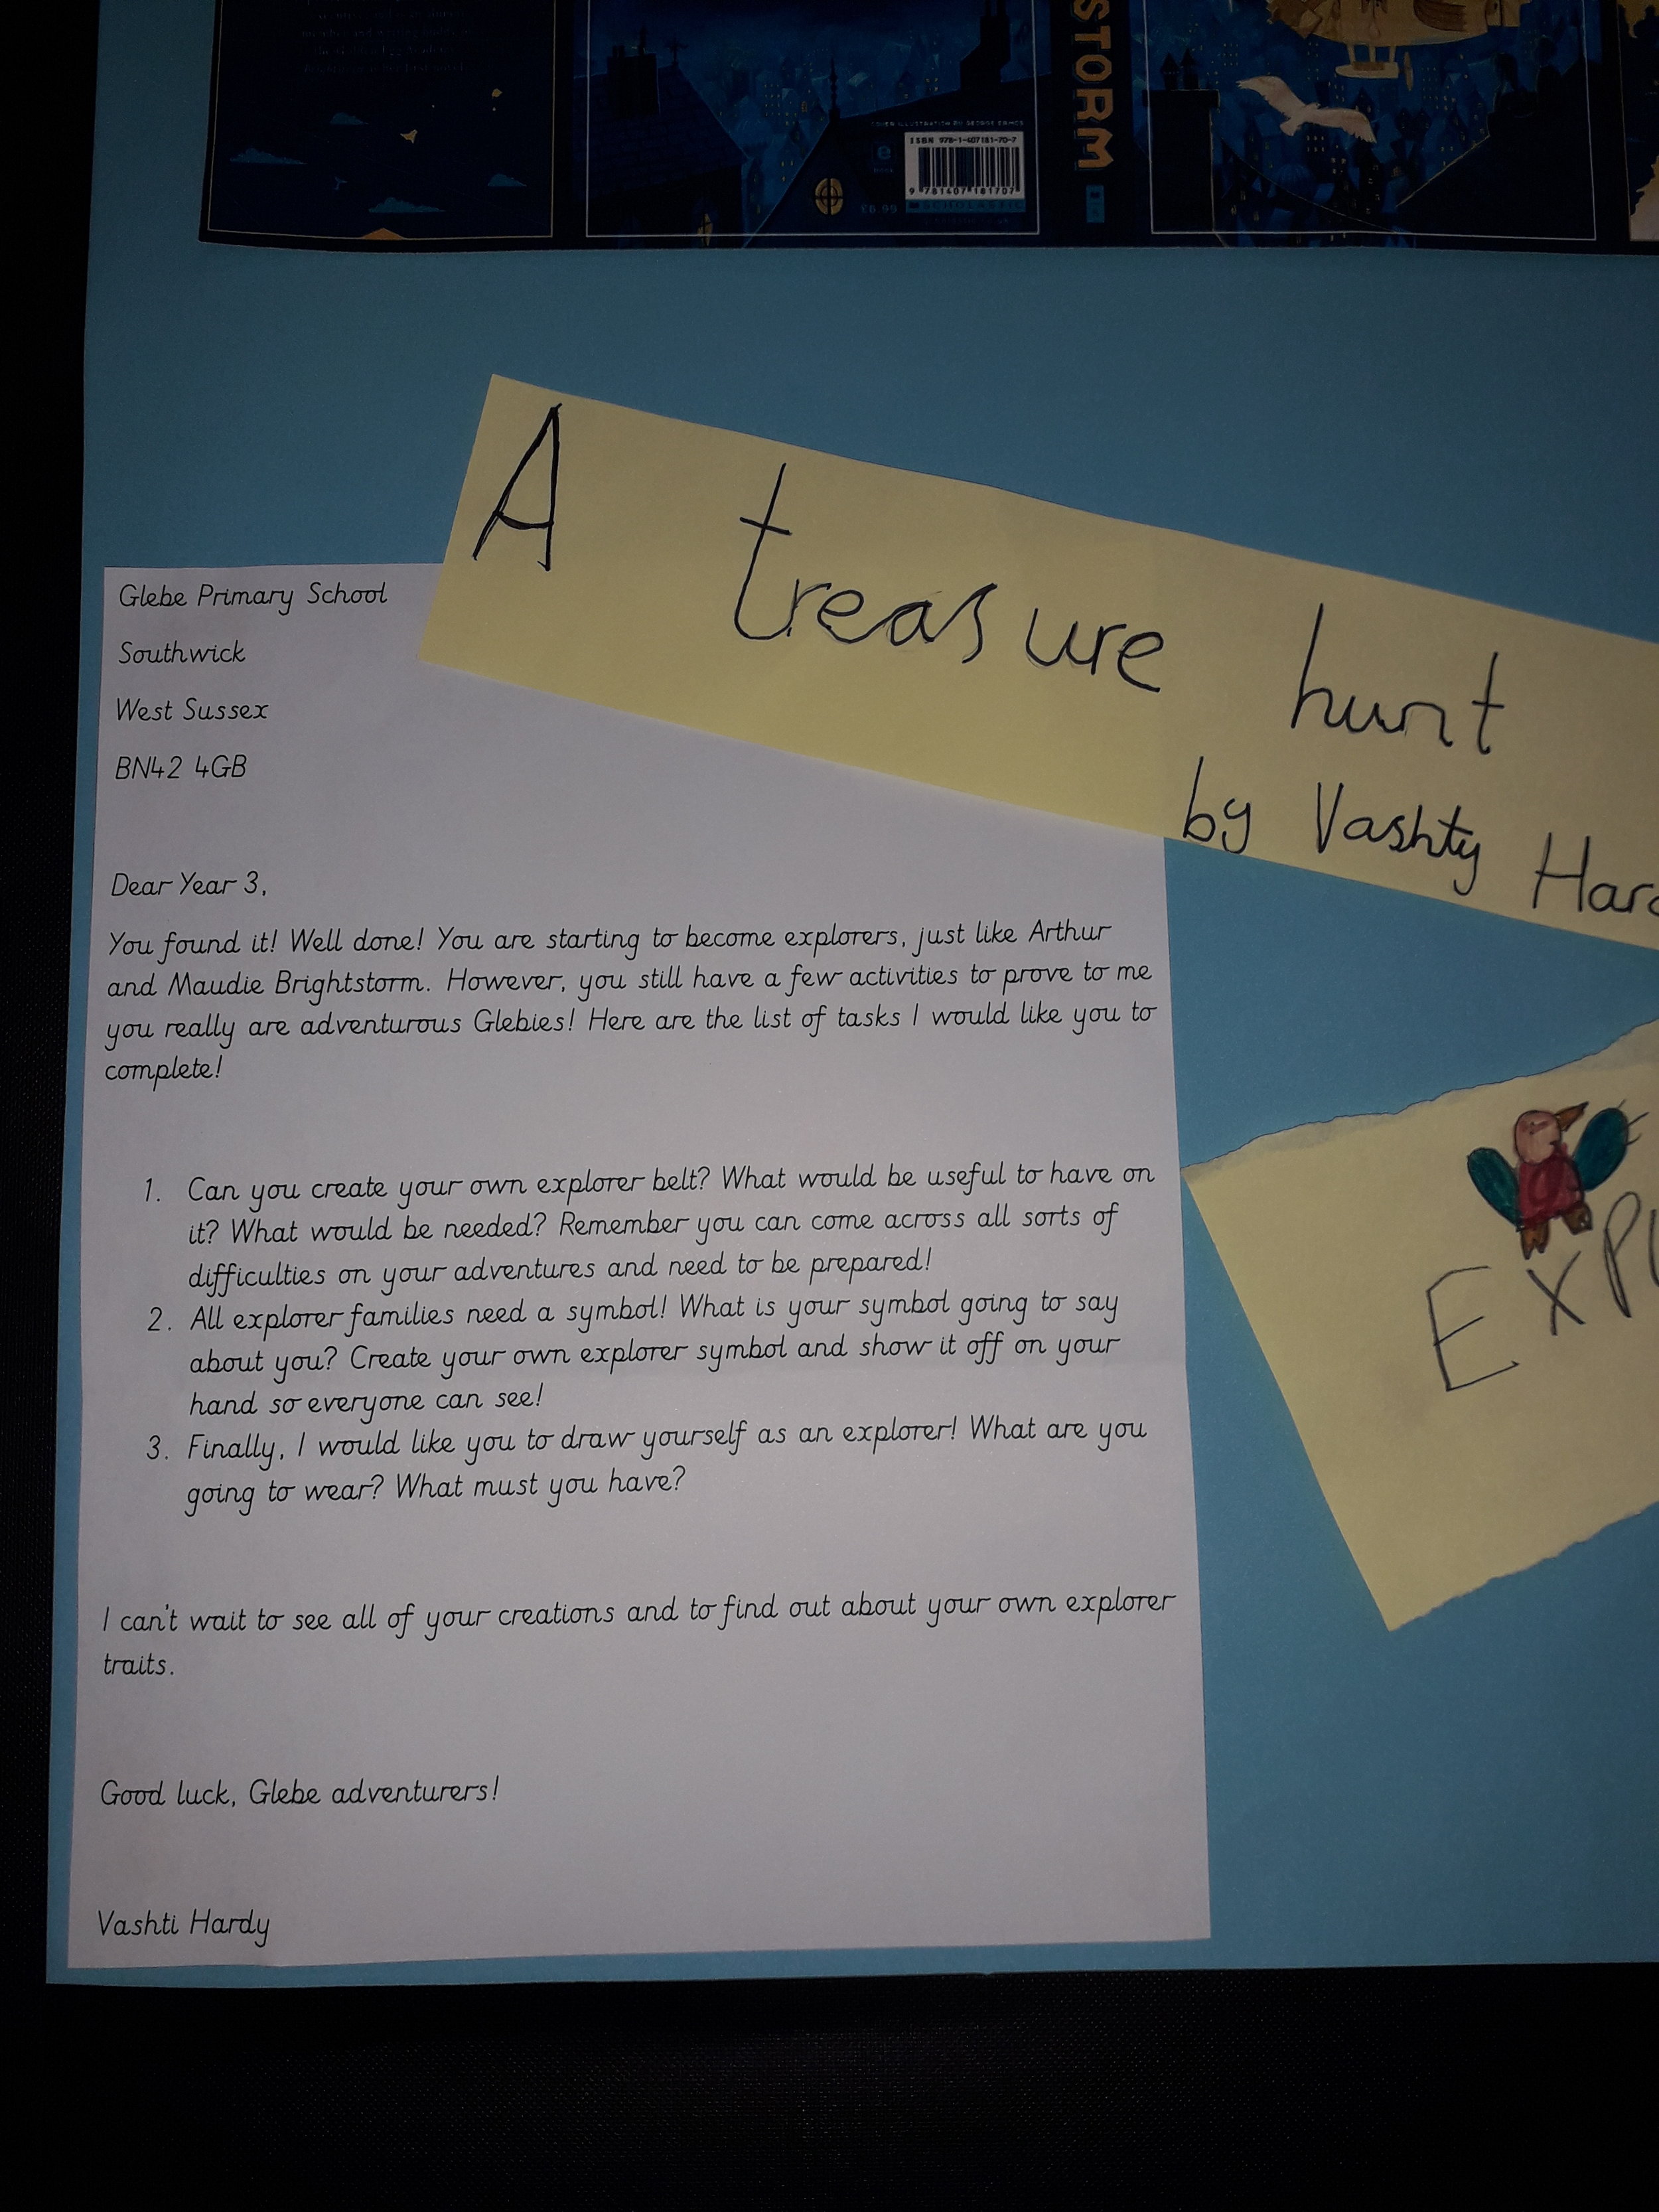 STORM
COVER ILLUSTRATION BY GEORGE ERMOS
ISBN 978-1-407181-70-7
9 781407 181707
£6.99
SCHOLASTIC
A treasure hunt
by Vashty Hard
Glebe Primary School
Southwick
West Sussex
BN42 4GB
Dear Year 3,
You found it! Well done! You are starting to become explorers, just like Arthur
and Maudie Brightstorm. However, you still have a few activities to prove to me
you really are adventurous Glebies! Here are the list of tasks I would like you to
complete!
1. Can you create your own explorer belt? What would be useful to have on
it? What would be needed? Remember you can come across all sorts of
difficulties on your adventures and need to be prepared!
2. All explorer families need a symbol! What is your symbol going to say
about you? Create your own explorer symbol and show it off on your
hand so everyone can see!
3. Finally, I would like you to draw yourself as an explorer! What are you
going to wear? What must you have?
I can't wait to see all of your creations and to find out about your own explorer
traits.
Good luck, Glebe adventurers!
Vashti Hardy
EXPL